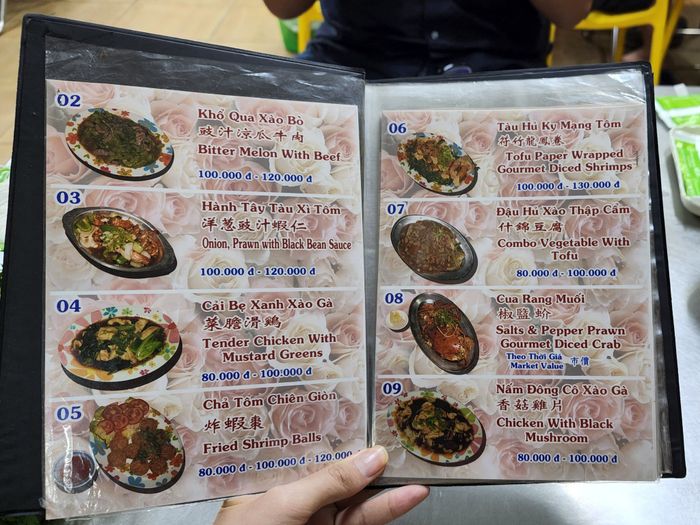 02
Khổ Qua Xào Bò
豉汁涼瓜牛肉
Bitter Melon With Beef
100.000 đ - 120.000 đ
03
Hành Tây Tàu Xì Tôm
洋葱豉汁蝦仁
Onion, Prawn with Black Bean Sauce
100.000 đ - 120.000 đ
04
Cải Bẹ Xanh Xào Gà
菜膽滑鷄
Tender Chicken With
Mustard Greens
80.000 đ - 100.000 đ
05
Chả Tôm Chiên Giòn
炸蝦棗
Fried Shrimp Balls
80.000 đ - 100.000 đ - 120.000
06
Tàu Hủ Ky Mạng Tôm
符竹龍鳳煮
Tofu Paper Wrapped
Gourmet Diced Shrimps
100.000 đ - 130.000 đ
07
Đậu Hủ Xào Thập Cẩm
什錦豆腐
Combo Vegetable With
Tofu
80.000 đ - 100.000 đ
08
Cua Rang Muối
椒鹽蚧
Salts & Pepper Prawn
Gourmet Diced Crab
Theo Thời Giá 市價
Market Value
09
Nấm Đông Cô Xào Gà
香菇雞片
Chicken With Black
Mushroom
80.000 đ - 100.000 đ